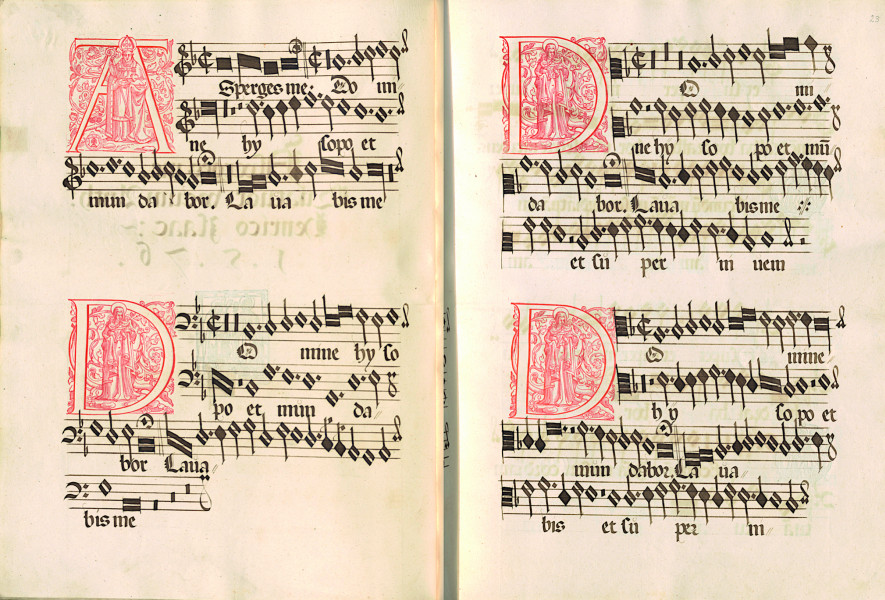 A Sperges me. Do mi
ne hy sopo, et
mun da bor. Laua bis me
D O mine hy so
po et mun da
bor Laua
bis me
23
D O mi
ne hy so po et mū
da bor. Laua bis me
et sū per in uem
D O mine
hy so po et
mun dabor. La ua
bis et sū per in